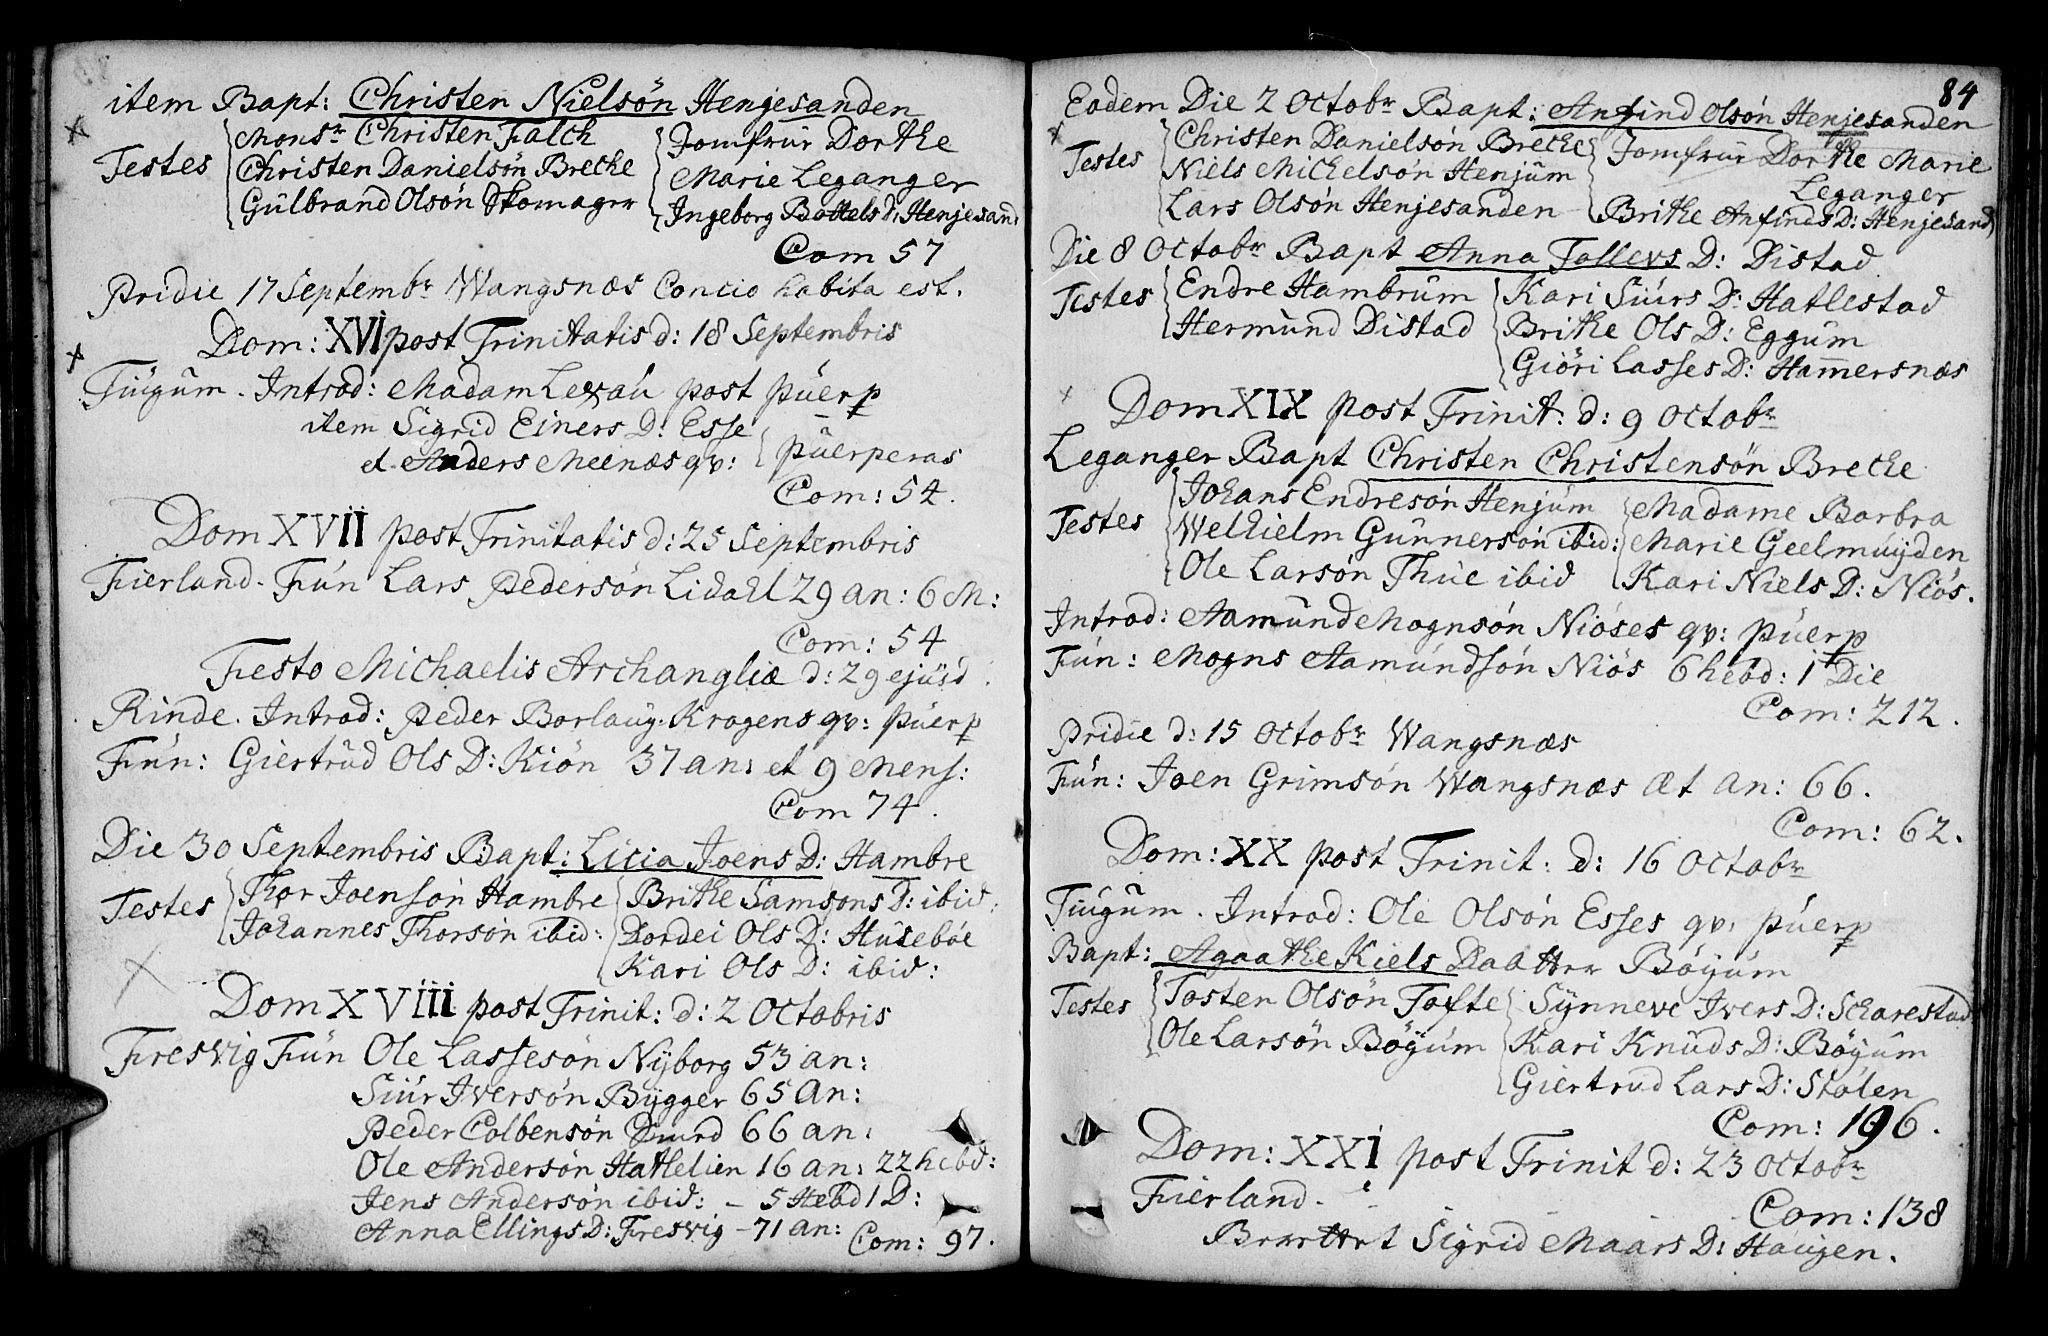 item Bapt: Christen Nielsön Henjesanden
Testes Monsr Christen Falch
Christen Danielsön Brecke
Gulbrand Olsön Skomager
Jomfrur Dorthe
Marie Leganger
Ingeborg Bottels d: Henjesand:
Com 57
Pridie 17 Septembr Wangsnæs Concio habita est.
Dom: XVI post Trinitatis d: 18 Septembris
Tiugum. Introd: Madam Lexau post puerp
item Sigrid Einers D: Esse
et Anders Meenæs qv: puerperas
Com: 54.
Dom XVII post Trinitatis d: 25 Septembris
Fierland. Fun Lars Pedersön Lidahl 29 an: 6 M:
Com: 54
Festo Michaelis Archangliæ d: 29 ejusd.
Rinde. Introd: Peder Borlaug: Kragens qv: puerp
Fun: Giertrud Ols D: Kiön 37 an: et 9 Mens:
Com 74.
Die 30 Septembris Bapt: Licia Joens D: Hambre
Testes Thor Joensön Hambre
Johannes Thorsön ibid:
Brithe Samsons D: ibid:
Dordei Ols D: Huseböe
Kari Ols D: ibid:
Dom XVIII post Trinit: d: 2 Octobris
Fresvig Fun Ole Lassesön Nyborg 53 an:
Siur Iversön Bygger 65 An:
Peder Colbensön Duurd 66 an:
Ole Andersön Hatlelien 16 an: 22 hebd:
Jens Andersön ibid: - 5 Hebd 1 D:
Anna Ellings D: Fresvig - 71 an:
Com: 97.
84
Eodem Die 2 Octobr Bapt: Anfind Olsön Henjesanden
Testes Christen Danielsön Brecke
Niels Michelsön Henjum
Lars Olsön Henjesanden
Jomfrur Dorthe Marie
Leganger
Brithe Anfinds D: Henjesand
Die 8 Octobr Bapt Anna Tollevs D: Distad
Testes Endre Hambrum
Hermund Distad
Kari Siurs D: Hatlestad
Brithe Ols D: Eggum
Giöri Lasses D: Hamersnæs
Dom XIX post Trinit: d: 9 Octobr
Leganger Bapt Christen Christensön Brecke
Testes Johans Endresön Henjum
Welhielm Gunnersön ibid:
Ole Larsön Thue ibid
Madame Barbra
Marie Geelmuyden
Kari Niels D: Niös.
Introd: Aamund Mognsön Niöses qv: puerp
Fun: Mogns Aamundsön Niös 6 hebd: 1 Die
Com: 212.
Pridie d: 15 Octobr Wangsnæs
Fun: Joen Grimsön Wangsnæs Æt An: 66.
Com: 62.
Dom: XX post Trinit: d: 16 Octobr
Tiugum. Introd: Ole Olsön Esses qv: puerp
Bapt: Agaathe Kiels Daatter Böyum
Testes Tosten Olsön Tofte
Ole Larsön Böyum
Synneve Ivers D: Scharestad
Kari Knuds D: Böyum
Giertrud Lars D: Stölen
Com: 196.
Dom: XXI post Trinit d: 23 Octobr
Fierland.
Com: 138
Berettet Sigrid Maars D: Haugen.